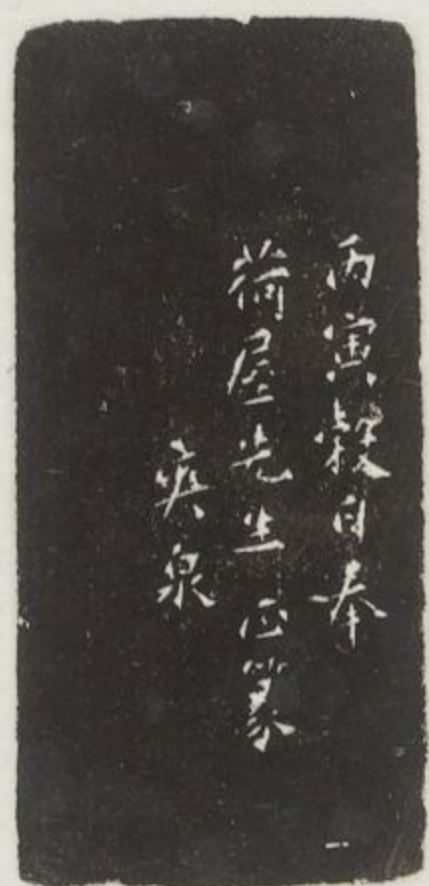 丙寅穀日奉
荷屋先生正篆
爽泉